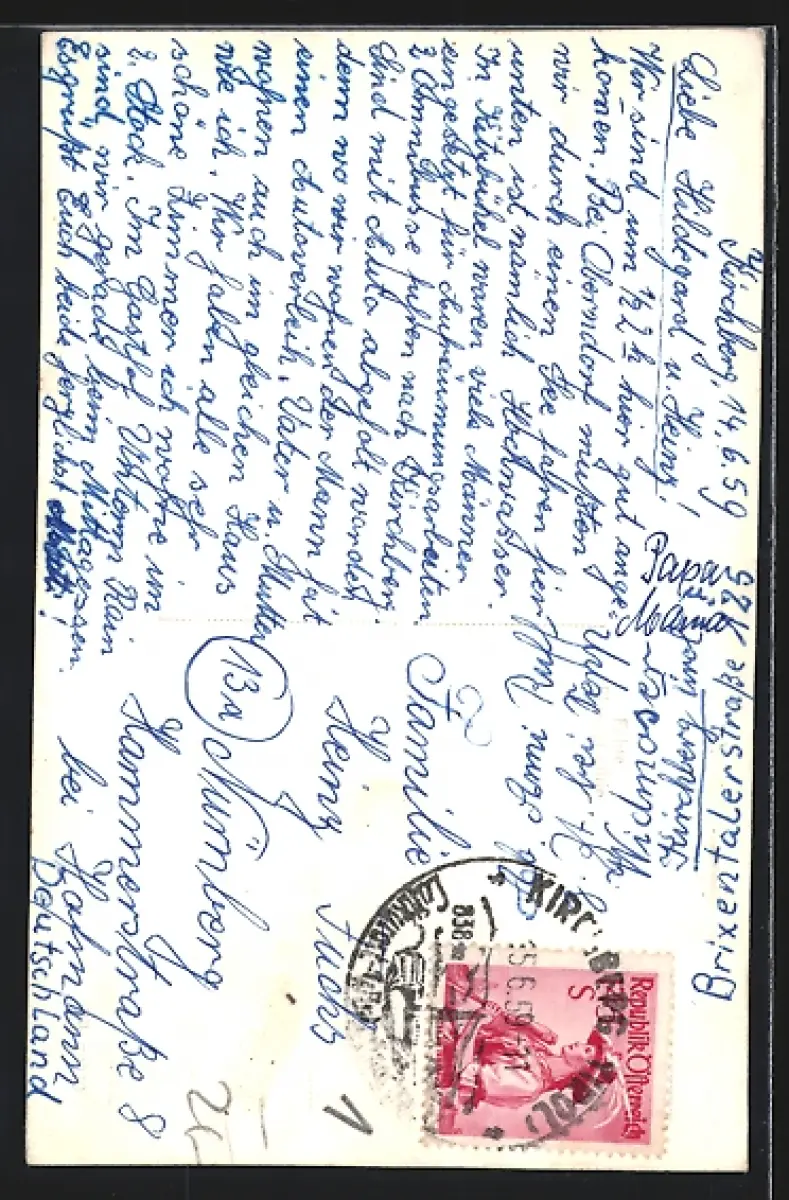 Kirchberg, 14.6.59
Liebe Hildegard u. Heinz!
Wir sind um ½2 h hier gut ange-
komen. Bei Oberndorf mußten
wir durch einen See fahren hier
unten ist nämlich Hochwasser.
In Kitzbühel waren viele Männer
eingesetzt für Aufräumungsarbeiten
2 Omnibusse fuhren nach Kirchberg.
Sind mit Auto abgeholt worden
denn wo wir wohnen der Mann hat
einen Autoverleih. Vater u. Mutter
wohnen auch im gleichen Haus
wie ich. Wir haben alle sehr
schöne Zimmer ich wohne im
2. Stock. Im Gasthof Unterm Rain
sind wir gerade beim Mittagessen.
Es grüßt Euch beide herzlichst
Papa
Mama
Brixentalerstraße 926
Familie
Heinz Fuchs
13a Nürnberg
Hammerstraße 8
bei Hofmann
Deutschland
KIRCHBERG (TIROL)
15.6.59-11
838 m
Republik Österreich
S